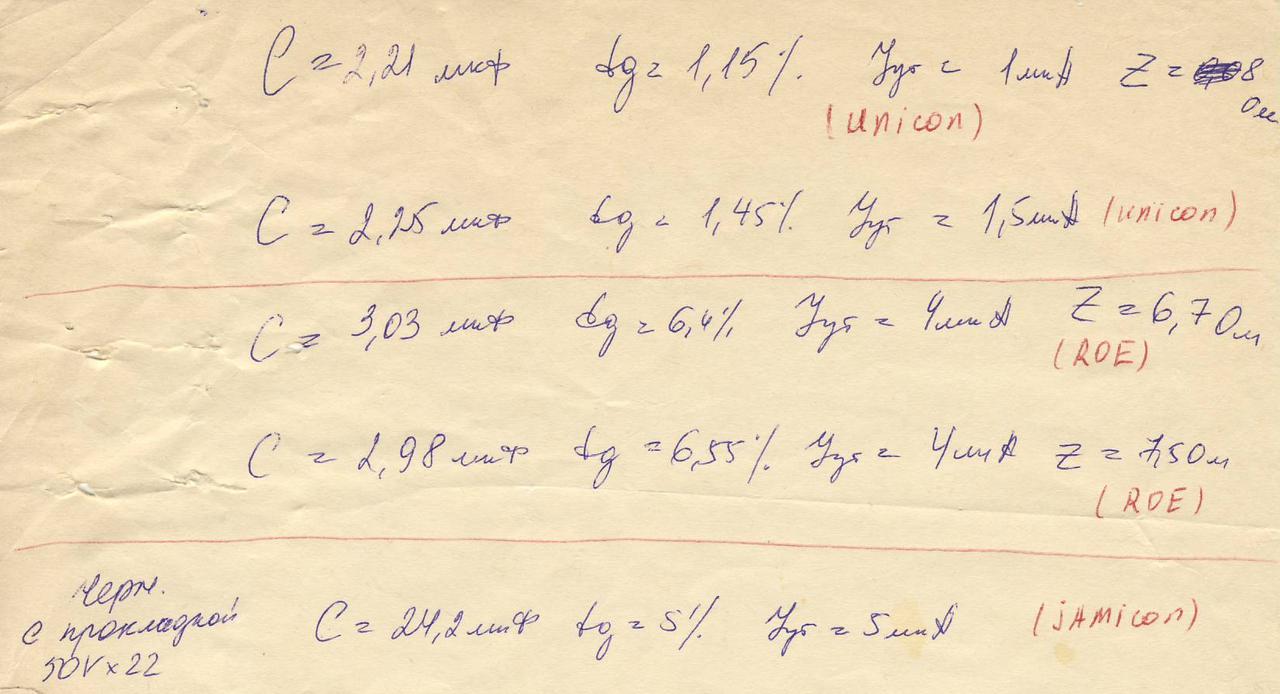 C = 2,21 мкФ tg = 1,15% Iут = 1мкА Z = 8 Ом
(Unicon)
C = 2,25 мкФ tg = 1,45% Iут = 1,5мкА (Unicon)
C = 3,03 мкФ tg = 6,4% Iут = 4мкА Z = 6,7 Ом
(ROE)
C = 2,98 мкФ tg = 6,55% Iут = 4мкА Z = 7,5 Ом
(ROE)
черн.
с прокладкой
50V x 22
C = 24,2 мкФ tg = 5% Iут = 5мкА (JAMICON)